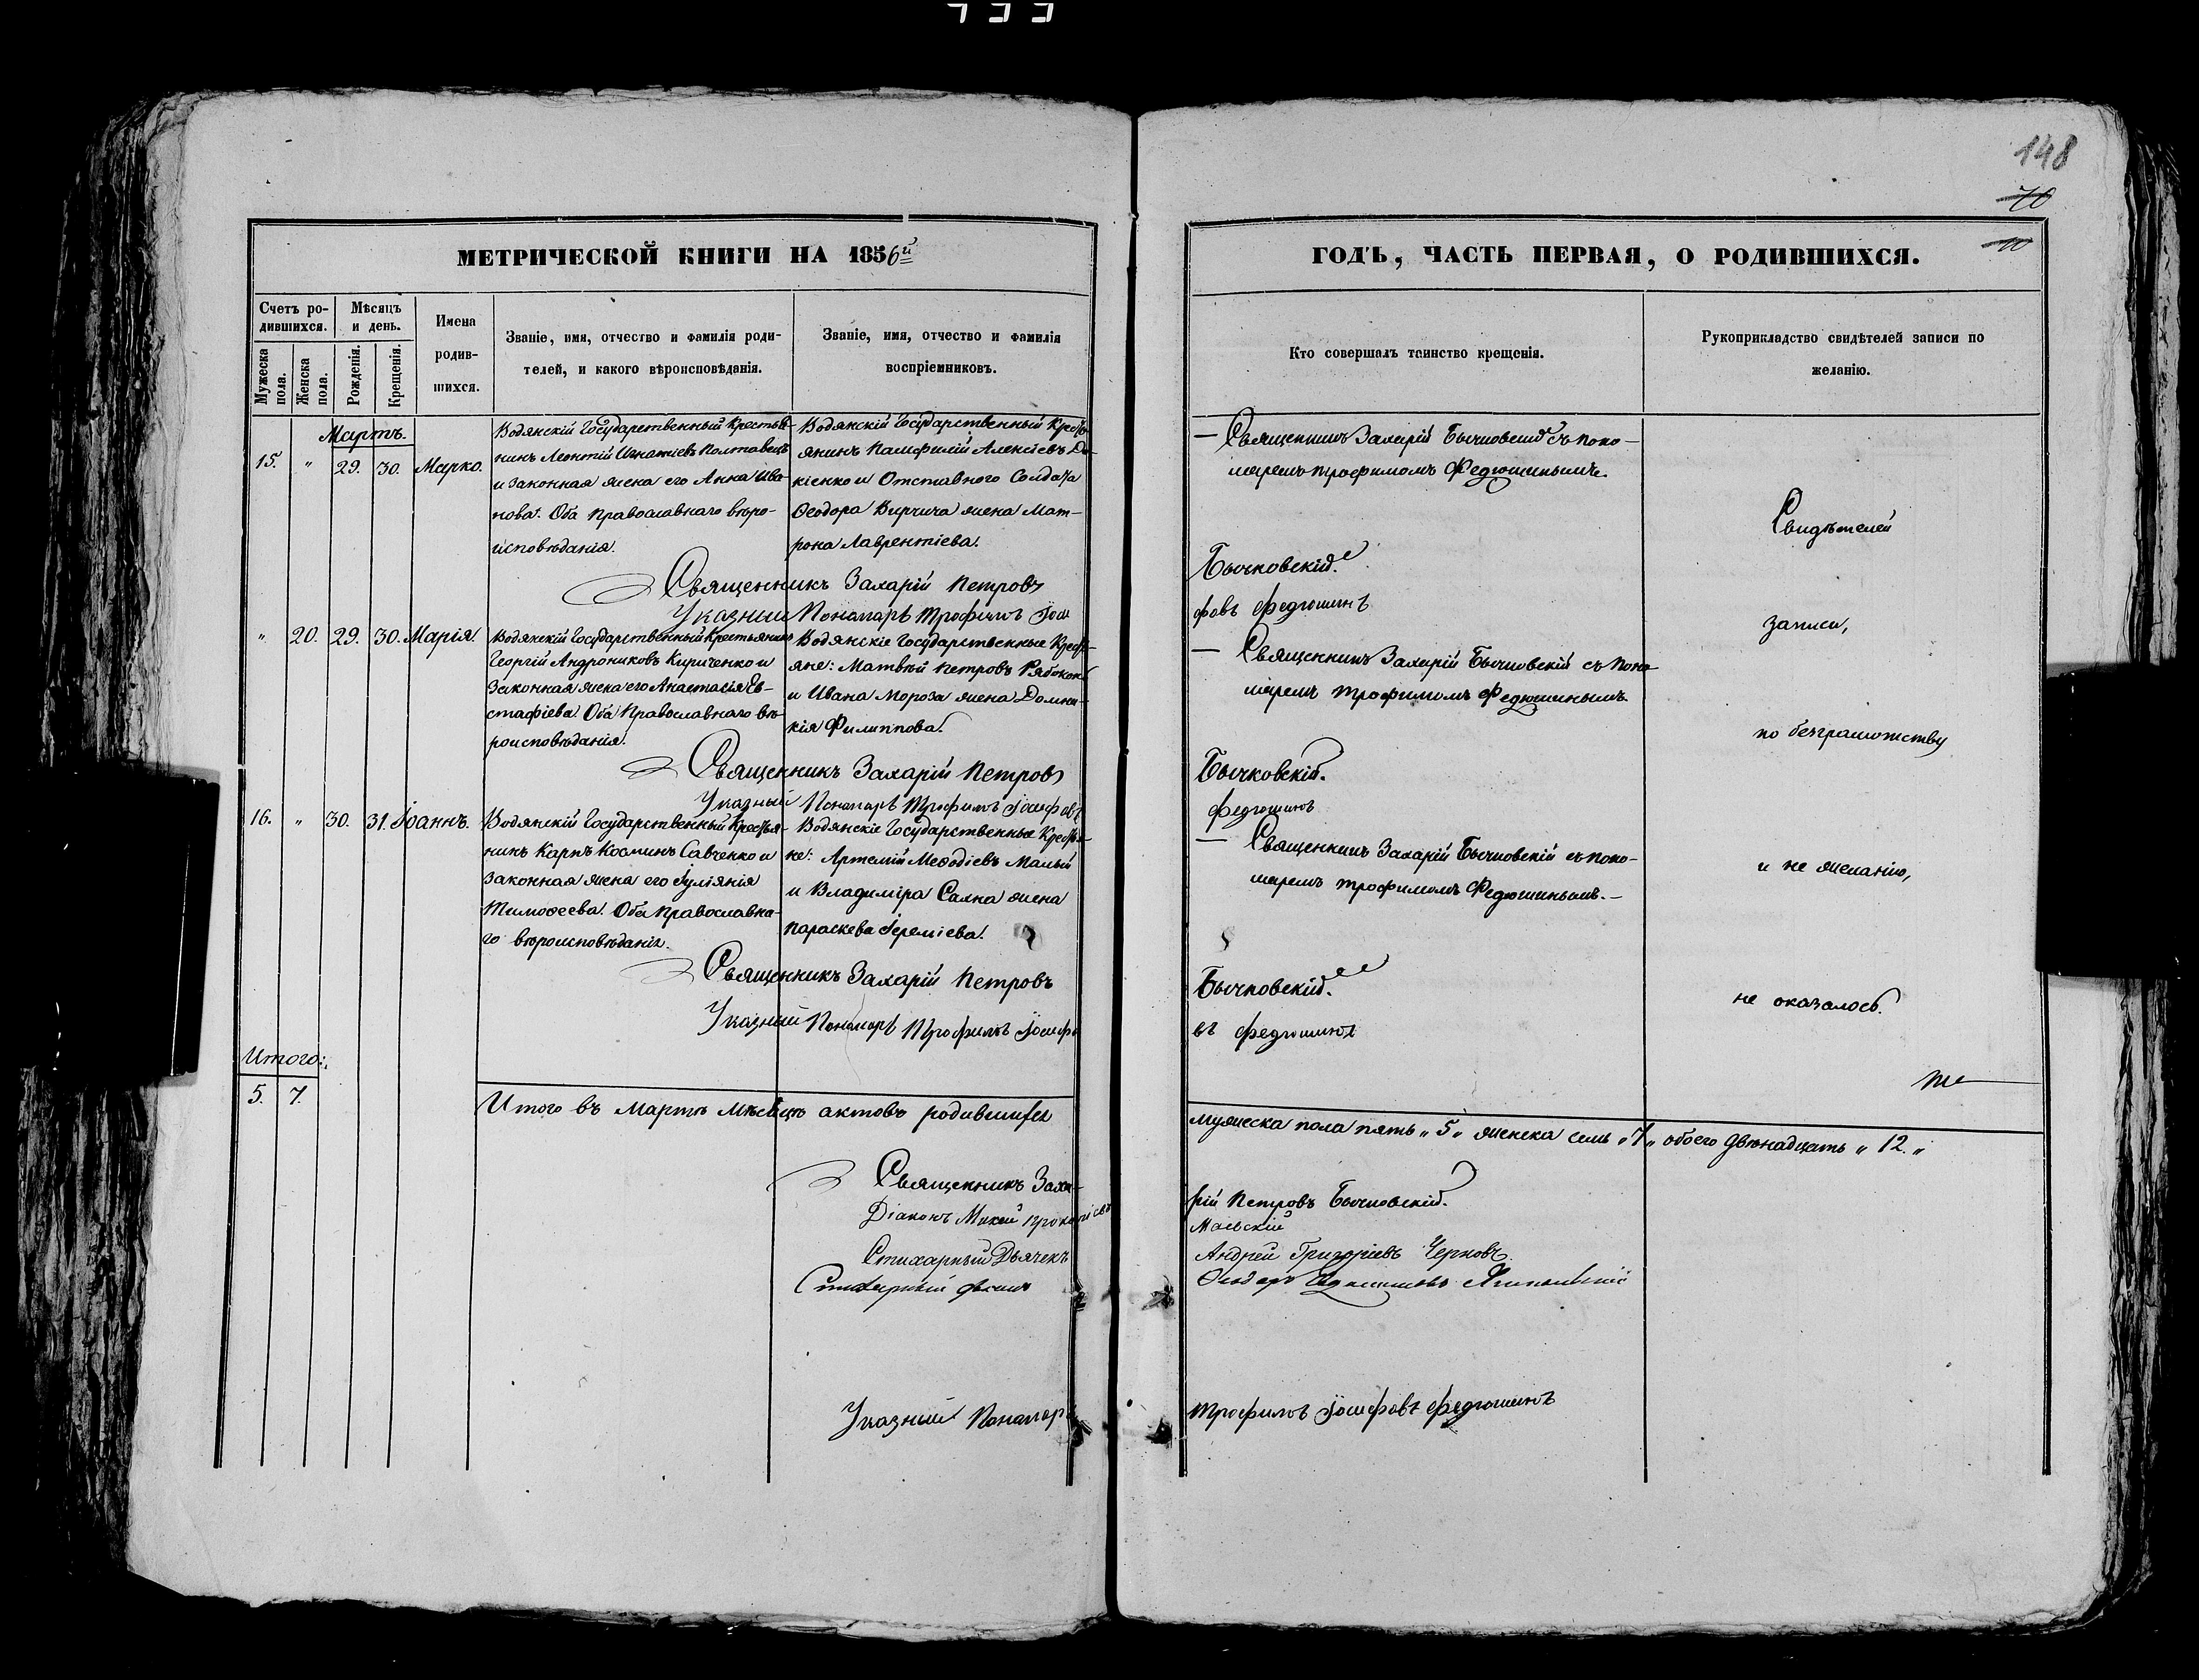 148
70
МЕТРИЧЕСКОЙ КНИГИ НА 1856й
ГОДЪ, ЧАСТЬ ПЕРВАЯ, О РОДИВШИХСЯ.
Счетъ ро-
дившихся.
Мужеска пола.
Женска пола.
Мѣсяцъ
и день.
Рожденія.
Крещенія.
Имена
родив-
шихся.
Званіе, имя, отчество и фамилія роди-
телей, и какого вѣроисповѣданія.
Званіе, имя, отчество и фамилія
воспріемниковъ.
Кто совершалъ таинство крещенія.
Рукоприкладство свидѣтелей записи по
желанію.
Мартъ.
15. " 29. 30. Марко.
Водянскій Государственный Крестья-
нинъ Леонтій Игнатіевъ Полтавецъ
и законная жена его Анна Ива
нова. Оба Православнаго вѣро-
исповѣданія.
Водянскій Государственный Кресть
янинъ Памфилій Алексіевъ До-
кіенко и Отставного Солдата
Ѳеодора Вирчича жена Мат-
рона Лаврентіева.
— Священникъ Захарій Бычковскій съ поно-
маремъ Трофимомъ Федюшинымъ.
Священникъ Захарій Петровъ
Бычковскій.
Указный Пономарь Трофимъ Іоси
фовъ Федюшинъ
" 20. 29. 30. Марія.
Водянскій Государственный Крестьянинъ
Георгій Андрониковъ Кириченко и
Законная жена его Анастасія Ев-
стафіева. Оба Православнаго вѣ-
роисповѣданія.
Водянскіе Государственные Кресть-
яне: Матвѣй Петровъ Рябоконь
и Ивана Мороза жена Домни-
кія Филиппова.
— Священникъ Захарій Бычковскій съ Поно-
маремъ Трофимомъ Федюшинымъ.
Священникъ Захарій Петровъ
Бычковскій.
Указный Пономарь Трофимъ Іосифовъ
Федюшинъ
16. " 30. 31. Іоаннъ.
Водянскій Государственный Крестья-
нинъ Карпъ Косминъ Савченко и
Законная жена его Іуліянія
Тимоѳеева. Оба Православна-
го вѣроисповѣданія.
Водянскіе Государственные Крестья-
не: Артемій Меѳодіевъ Малый
и Владиміра Саяна жена
Параскева Іереміева.
— Священникъ Захарій Бычковскій съ поно-
маремъ Трофимомъ Федюшинымъ.—
Священникъ Захарій Петровъ
Бычковскій.
Указный Пономарь Трофимъ Іосифо
въ Федюшинъ
Свидѣтелей
записи,
по безграмотству
и не желанію,
не оказалось.
Итого:
5. 7.
Итого въ Мартѣ Мѣсяцѣ актовъ родившихся
мужеска пола пять „5„ женска семь „7„ обоего двѣнадцать „12.„
Священникъ Заха-
рій Петровъ Бычковскій.
Діаконъ Михей Прокопіевъ
Маевскій
Стихарный Дьячекъ
Андрей Григоріевъ Черновъ
Стихарный
Ѳеодоръ
Указный Пономарь
Трофимъ Іосифовъ Федюшинъ